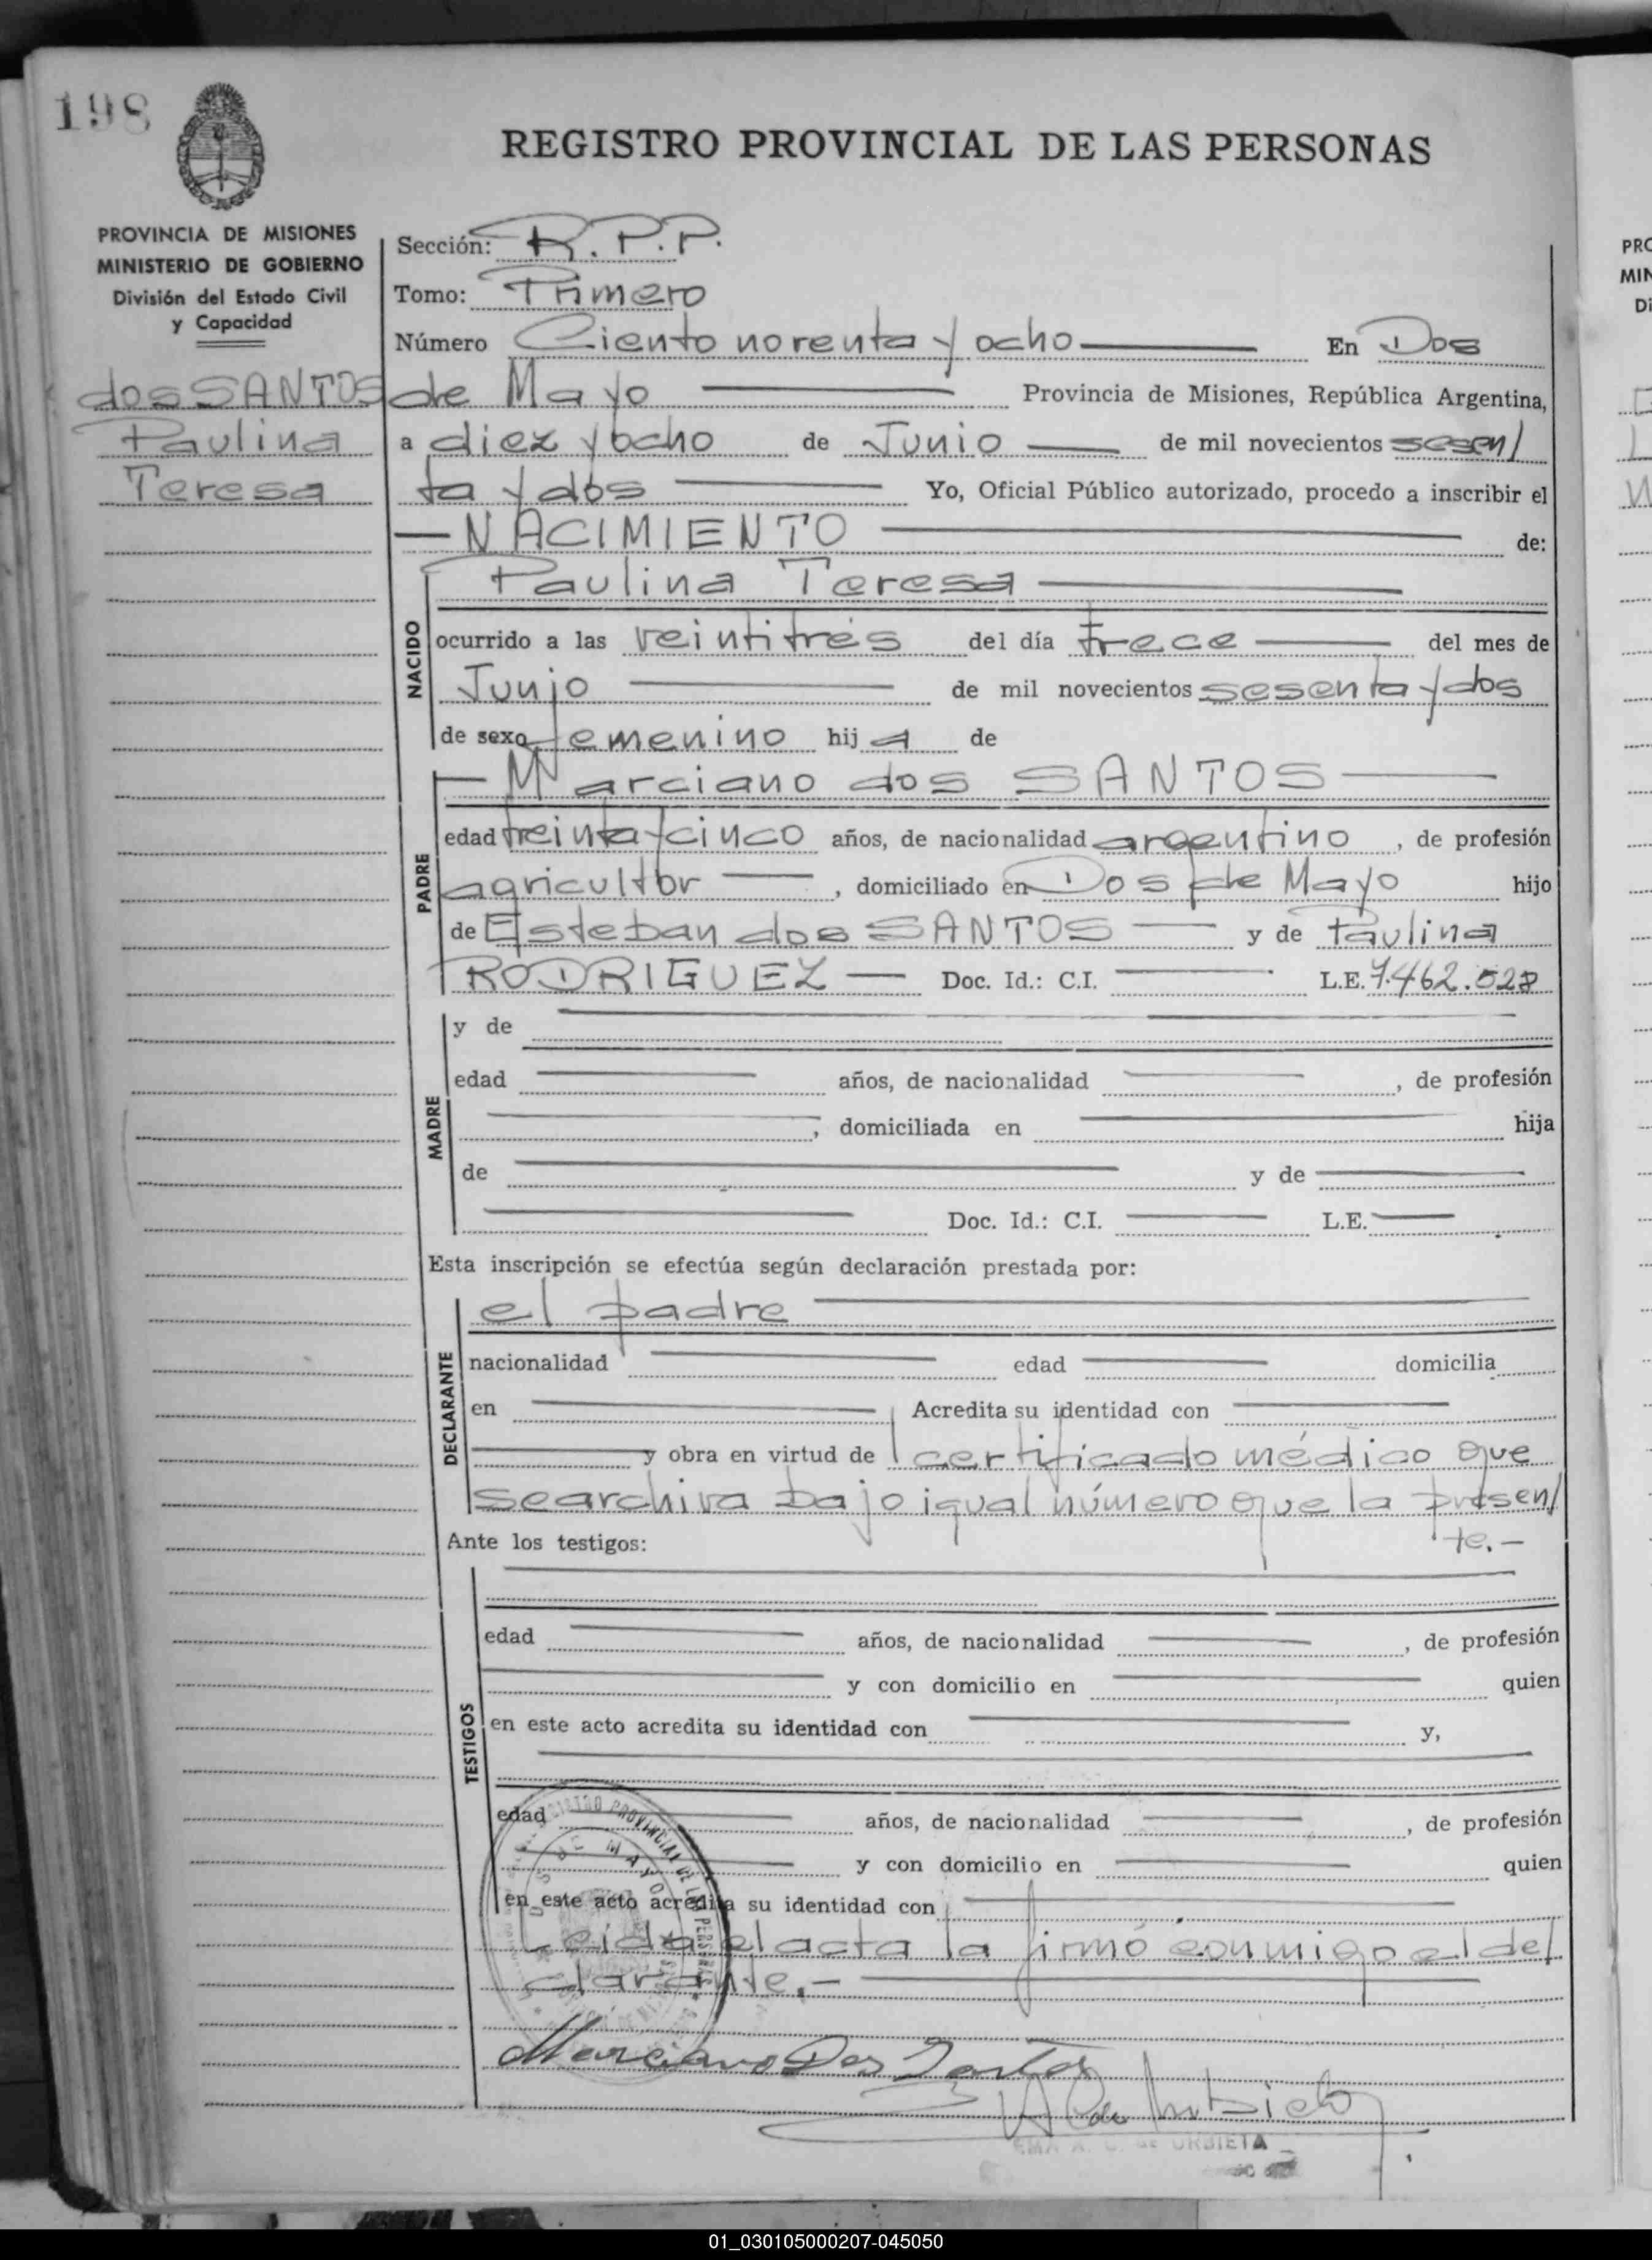 198
REGISTRO PROVINCIAL DE LAS PERSONAS
PROVINCIA DE MISIONES
MINISTERIO DE GOBIERNO
División del Estado Civil
y Capacidad
dos SANTOS
Paulina
Teresa
Sección: R.P.P.
Tomo: Primero
Número Ciento noventa y ocho En Dos
de Mayo Provincia de Misiones, República Argentina,
a diez y ocho de Junio de mil novecientos sesen/
ta y dos Yo, Oficial Público autorizado, procedo a inscribir el
NACIMIENTO de:
NACIDO
Paulina Teresa
ocurrido a las veintitrés del día trece del mes de
Junio de mil novecientos sesenta y dos
de sexo femenino hija de
PADRE
Marciano dos SANTOS
edad treinta y cinco años, de nacionalidad argentino, de profesión
agricultor, domiciliado en Dos de Mayo hijo
de Esteban dos SANTOS y de Paulina
RODRIGUEZ Doc. Id.: C.I. L.E. 7.462.528
MADRE
y de
edad años, de nacionalidad , de profesión
, domiciliada en hija
de y de
Doc. Id.: C.I. L.E.
Esta inscripción se efectúa según declaración prestada por:
DECLARANTE
el padre
nacionalidad edad domicilia
en Acredita su identidad con
y obra en virtud de certificado médico que
se archiva bajo igual número que la presen/
te.-
Ante los testigos:
TESTIGOS
edad años, de nacionalidad , de profesión
y con domicilio en quien
en este acto acredita su identidad con y,
edad años, de nacionalidad , de profesión
y con domicilio en quien
en este acto acredita su identidad con
Leida el acta la firmó conmigo el de/
clarante.-
REGISTRO PROVINCIAL DE LAS PERSONAS
DOS DE MAYO
Marciano Dos Santos
de URBIETA
PRO
MIN
Di
01_030105000207-045050